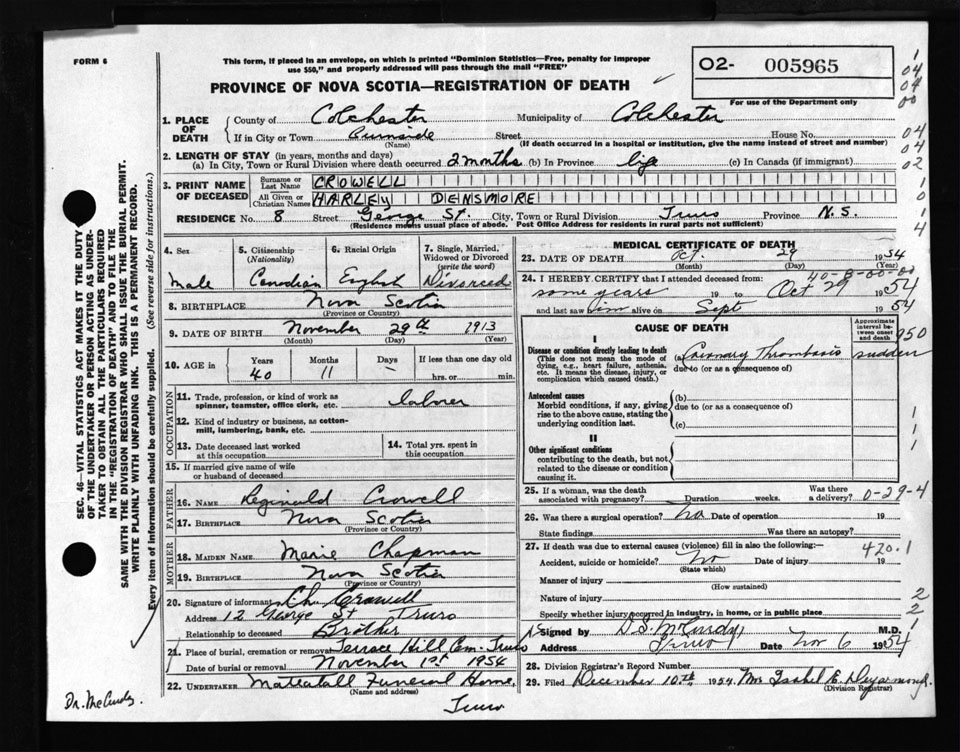 FORM 6
This form, if placed in an envelope, on which is printed "Dominion Statistics—Free, penalty for improper
use $50," and properly addressed will pass through the mail "FREE"
PROVINCE OF NOVA SCOTIA—REGISTRATION OF DEATH
O2- 005965
For use of the Department only
1. PLACE OF DEATH
County of Colchester Municipality of Colchester
If in City or Town Burnside Street House No.
(Name) (If death occurred in a hospital or institution, give the name instead of street and number)
2. LENGTH OF STAY (in years, months and days)
(a) In City, Town or Rural Division where death occurred 2 months (b) In Province life (c) In Canada (if immigrant)
3. PRINT NAME OF DECEASED
Surname or Last Name CROWELL
All Given or Christian Names HARLEY DENSMORE
RESIDENCE No. 8 Street George St. City, Town or Rural Division Truro Province N.S.
(Residence means usual place of abode. Post Office Address for residents in rural parts not sufficient)
4. Sex
Male
5. Citizenship
(Nationality)
Canadian
6. Racial Origin
English
7. Single, Married,
Widowed or Divorced
(write the word)
Divorced
8. BIRTHPLACE Nova Scotia
(Province or Country)
9. DATE OF BIRTH November 29th 1913
(Month) (Day) (Year)
10. AGE in
Years Months Days If less than one day old
40 11 — hrs. or min.
OCCUPATION
11. Trade, profession, or kind of work as
spinner, teamster, office clerk, etc. laborer
12. Kind of industry or business, as cotton-
mill, lumbering, bank, etc.
13. Date deceased last worked
at this occupation
14. Total yrs. spent in
this occupation
15. If married give name of wife
or husband of deceased
FATHER
16. NAME Reginald Crowell
17. BIRTHPLACE Nova Scotia
(Province or Country)
MOTHER
18. MAIDEN NAME Marie Chapman
19. BIRTHPLACE Nova Scotia
(Province or Country)
20. Signature of informant Crowell
Address 12 George St Truro
Relationship to deceased Brother
21. Place of burial, cremation or removal Terrace Hill Cem. Truro
Date of burial or removal November 1st 1954
22. UNDERTAKER Mattatall Funeral Home,
(Name and address)
Truro
MEDICAL CERTIFICATE OF DEATH
23. DATE OF DEATH Oct. 29 1954
(Month) (Day) (Year)
40-8-00-00
24. I HEREBY CERTIFY that I attended deceased from:
some years 19 to Oct 29 1954
and last saw him alive on Sept 1954
CAUSE OF DEATH
Approximate
interval be-
tween onset
and death
950
I
Disease or condition directly leading to death
(This does not mean the mode of
dying, e.g., heart failure, asthenia,
etc. It means the disease, injury, or
complication which caused death.)
(a) Coronary Thrombosis sudden
due to (or as a consequence of)
Antecedent causes
Morbid conditions, if any, giving
rise to the above cause, stating the
underlying condition last.
(b)
due to (or as a consequence of)
(c)
II
Other significant conditions
contributing to the death, but not
related to the disease or condition
causing it.
25. If a woman, was the death
associated with pregnancy? Duration weeks. Was there
a delivery? 0-29-4
26. Was there a surgical operation? No Date of operation 19
State findings Was there an autopsy?
27. If death was due to external causes (violence) fill in also the following:— 420.1
Accident, suicide or homicide? No Date of injury 19
(State which)
Manner of injury
(How sustained)
Nature of injury
Specify whether injury occurred in industry, in home, or in public place
Signed by D.S. McCurdy M.D.
Address Truro Date Nov 6 1954
28. Division Registrar's Record Number
29. Filed December 10th 1954. Mrs Isabel E. Deyarmond.
(Division Registrar)
SEC. 46—VITAL STATISTICS ACT MAKES IT THE DUTY
OF THE UNDERTAKER OR PERSON ACTING AS UNDER-
TAKER TO OBTAIN ALL THE PARTICULARS REQUIRED
IN THE "REGISTRATION OF DEATH" AND TO FILE THE
SAME WITH THE DIVISION REGISTRAR WHO SHALL ISSUE THE BURIAL PERMIT.
WRITE PLAINLY WITH UNFADING INK. THIS IS A PERMANENT RECORD.
Every item of information should be carefully supplied. (See reverse side for instructions.)
Dr. McCurdy.
1
04
04
00
04
04
02
1
0
1
4
1
1
1
2
2
1